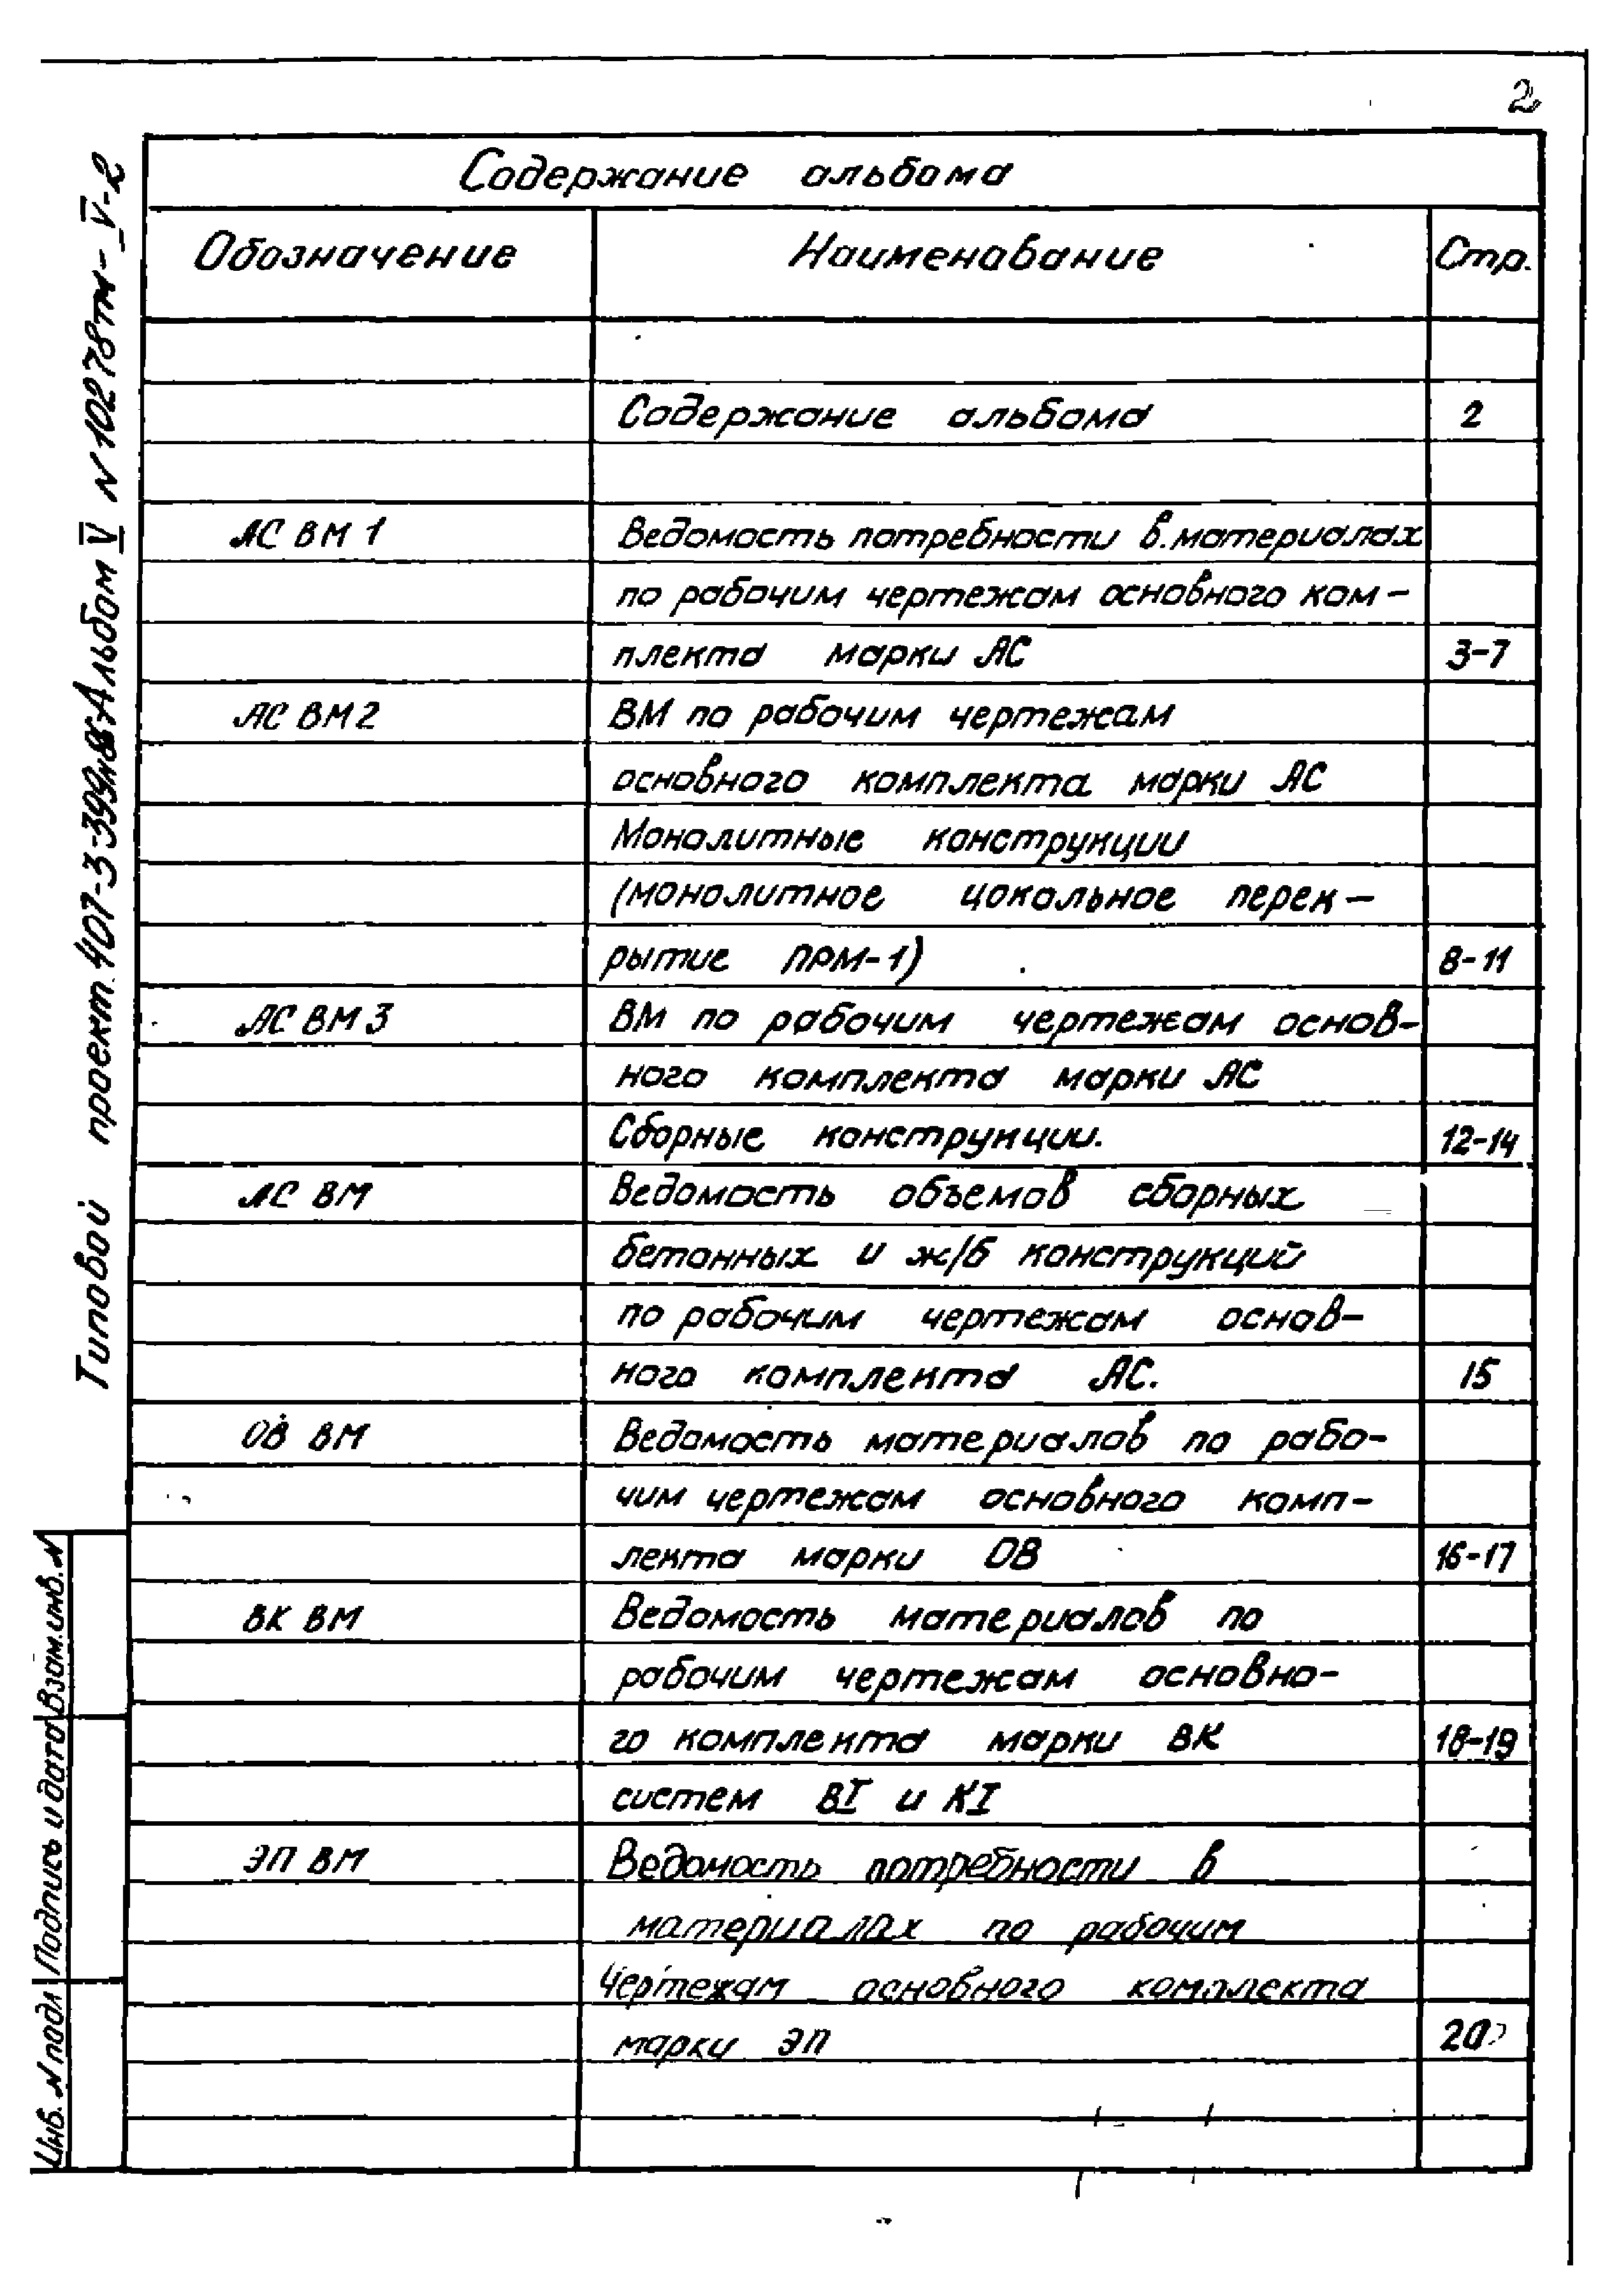 2
Содержание альбома
Обозначение Наименование Стр.
Содержание альбома 2
АС ВМ 1 Ведомость потребности в материалах
по рабочим чертежам основного ком-
плекта марки АС 3-7
АС ВМ 2 ВМ по рабочим чертежам
основного комплекта марки АС
Монолитные конструкции
(монолитное цокольное перек-
рытие ПРМ-1) 8-11
АС ВМ 3 ВМ по рабочим чертежам основ-
ного комплекта марки АС
Сборные конструкции. 12-14
АС ВМ Ведомость объемов сборных
бетонных и ж/б конструкций
по рабочим чертежам основ-
ного комплекта АС. 15
ОВ ВМ Ведомость материалов по рабо-
чим чертежам основного комп-
лекта марки ОВ 16-17
ВК ВМ Ведомость материалов по
рабочим чертежам основно-
го комплекта марки ВК 18-19
систем ВI и КI
ЭП ВМ Ведомость потребности в
материалах по рабочим
чертежам основного комплекта
марки ЭП 20
Типовой проект 407-3-399м.85 Альбом V N 10278тм-V-2
Инв. N подл Подпись и дата Взам.инв.N